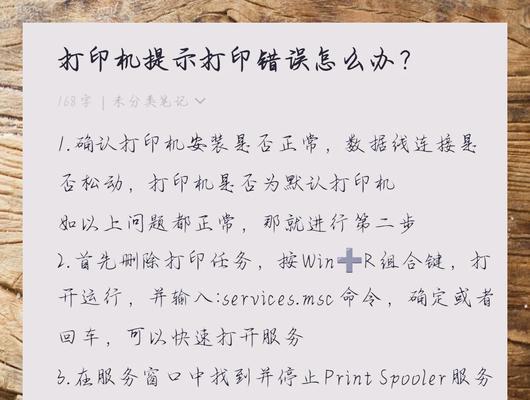 打印机提示打印错误怎么办？
168字 | 未分类笔记
1.确认打印机安装是否正常，数据线连接是
否松动，打印机是否为默认打印机
如以上问题都正常，那就进行第二步
2.首先删除打印任务，按Win➕R组合键，打
开运行，并输入:services.msc命令，确定或者
回车，可以快速打开服务
3.在服务窗口中找到并停止Print Spooler服务